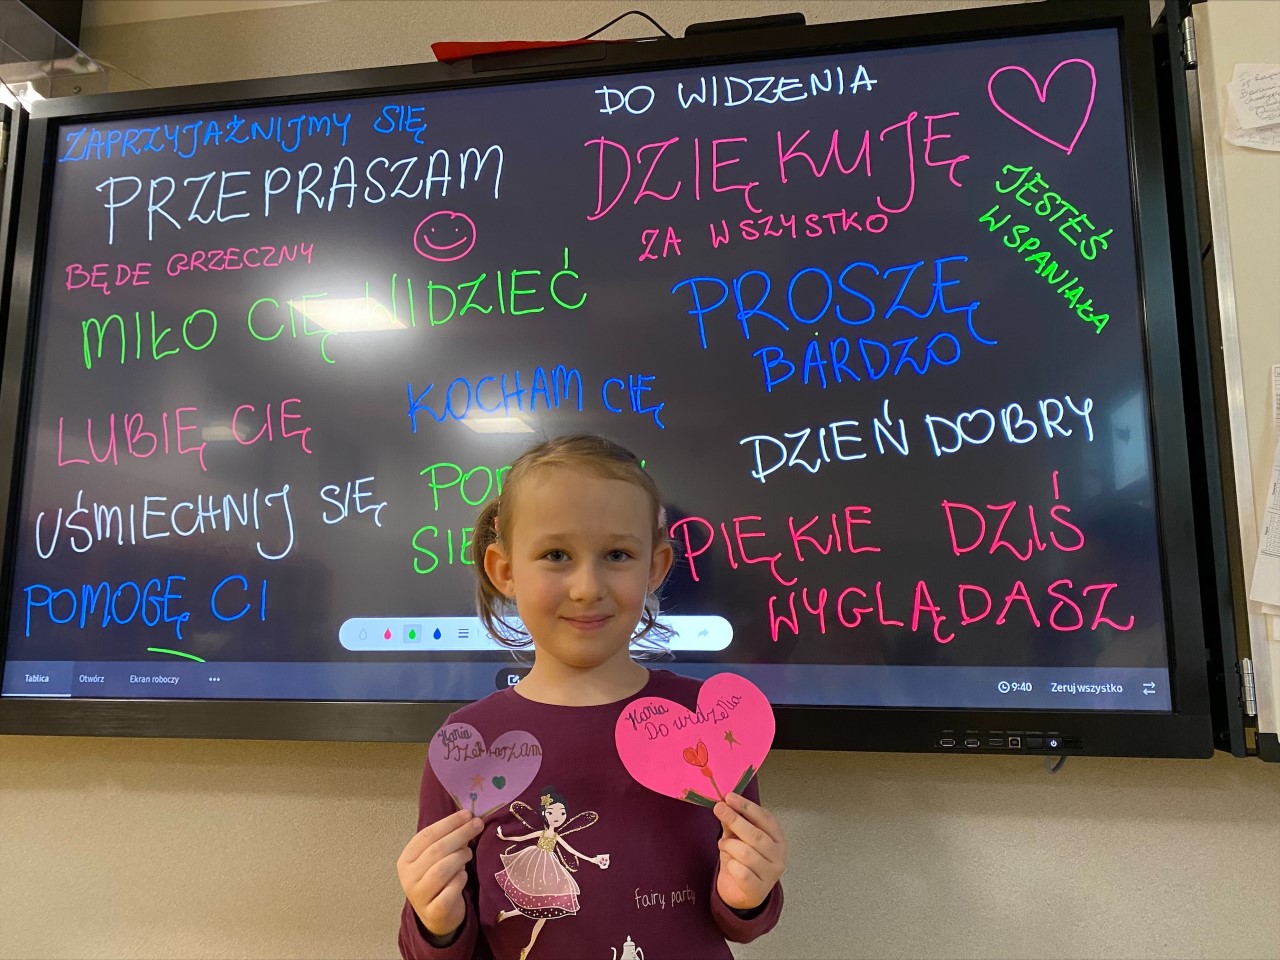 ZAPRZYJAŹNIJMY SIĘ
PRZEPRASZAM
BĘDE GRZECZNY
MIŁO CIĘ WIDZIEĆ
LUBIĘ CIĘ
KOCHAM CIĘ
UŚMIECHNIJ SIĘ
POMOGĘ CI
SIĘ
DO WIDZENIA
DZIĘKUJĘ
ZA WSZYSTKO
JESTEŚ
WSPANIAŁA
PROSZĘ
BARDZO
DZIEŃ DOBRY
PIĘKIE DZIŚ
WYGLĄDASZ
Tablica
Otwórz
Ekran roboczy
9:40
Zeruj wszystko
Hania
Hania
Do widzenia
fairy party